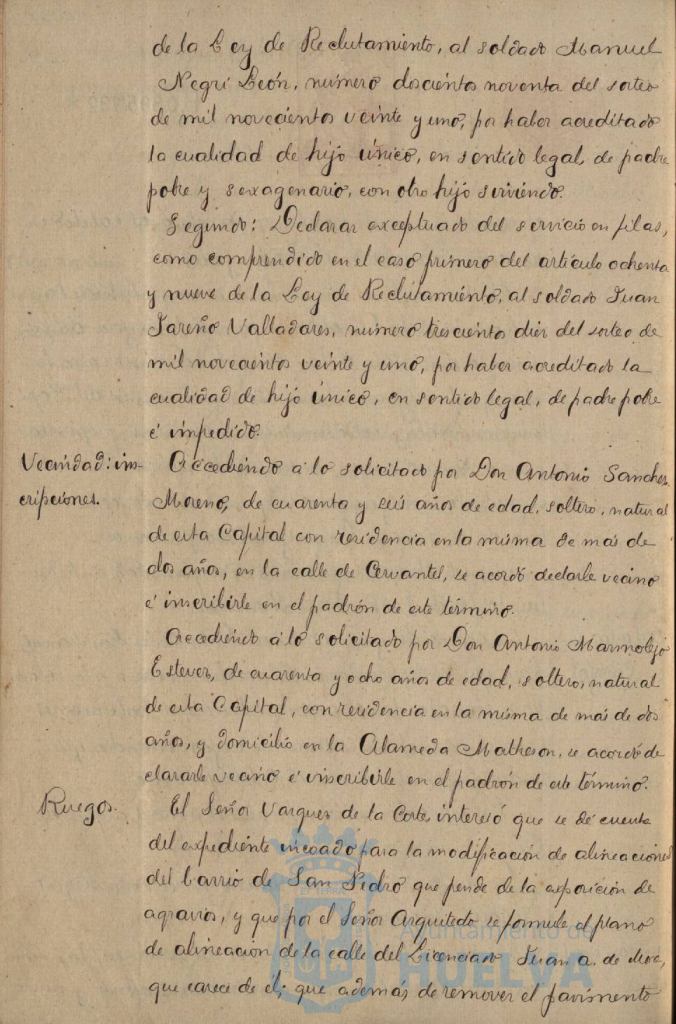 de la Ley de Reclutamiento, al soldado Manuel
Negri León, número doscientos noventa del sorteo
de mil novecientos veinte y uno, por haber acreditado
la cualidad de hijo único, en sentido legal, de padre
pobre y sexagenario, con otro hijo sirviendo.
Segundo: Declarar exceptuado del servicio en filas,
como comprendido en el caso primero del artículo ochenta
y nueve de la Ley de Reclutamiento, al soldado Juan
Jareño Valladares, número trescientos diez del sorteo de
mil novecientos veinte y uno, por haber acreditado la
cualidad de hijo único, en sentido legal, de padre pobre
é impedido.
Vecindad: ins-
cripciones.
Accediendo á lo solicitado por Don Antonio Sanchez
Moreno, de cuarenta y seis años de edad, soltero, natural
de esta Capital con residencia en la misma de más de
dos años, en la calle de Cervantes, se acordó declarle vecino
é inscribirle en el padrón de este término.
Accediendo á lo solicitado por Don Antonio Marmolejo
Estevez, de cuarenta y ocho años de edad, soltero, natural
de esta Capital, con residencia en la misma de más de dos
años, y domicilio en la Alameda Matheson, se acordó de-
clararle vecino é inscribirle en el padrón de este término.
Ruegos.
El Señor Vazquez de la Corte, interesó que se dé cuenta
del expediente incoado para la modificación de alineaciones
del barrio de San Pedro que pende de la exposición de
agravios, y que por el Señor Arquitecto se formule el plano
de alineación de la calle del Licenciado Juan A. de
que carece de él; que además de remover el pavimento
Ayuntamiento de
HUELVA